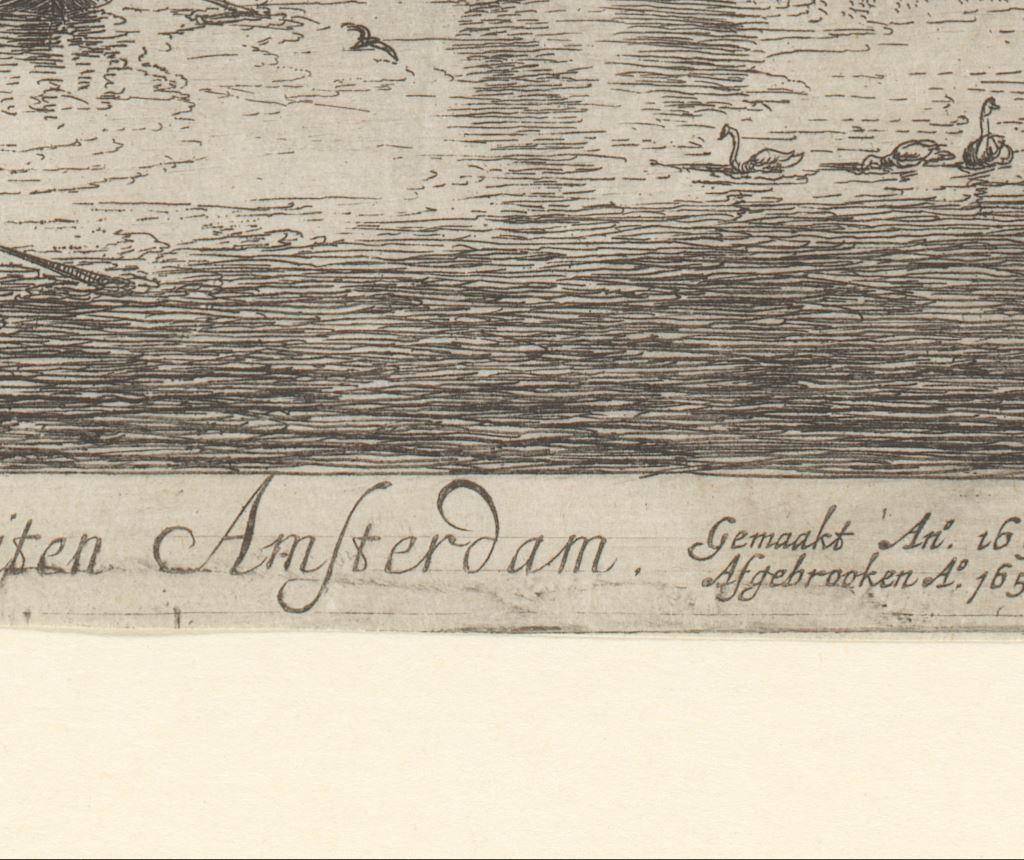 iten Amsterdam. Gemaakt Anº. 165
Afgebrooken Aº. 165